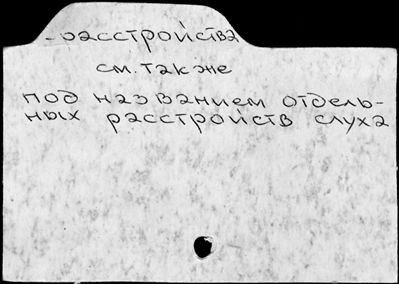 -расстройства
см. также
под названием отдель-
ных расстройств слуха